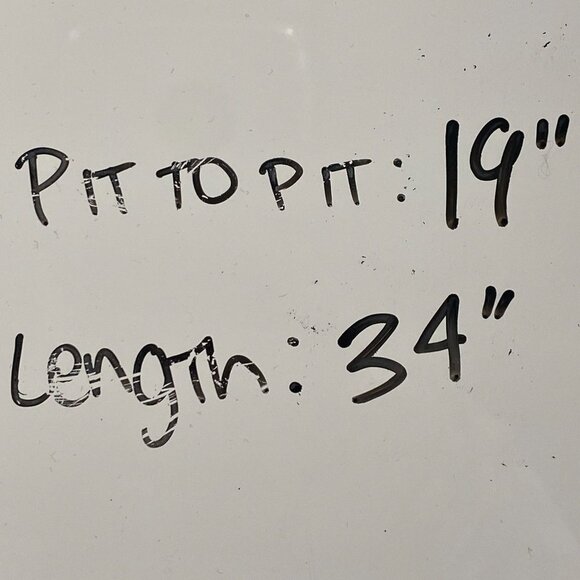 PIT TO PIT: 19"
Length: 34"